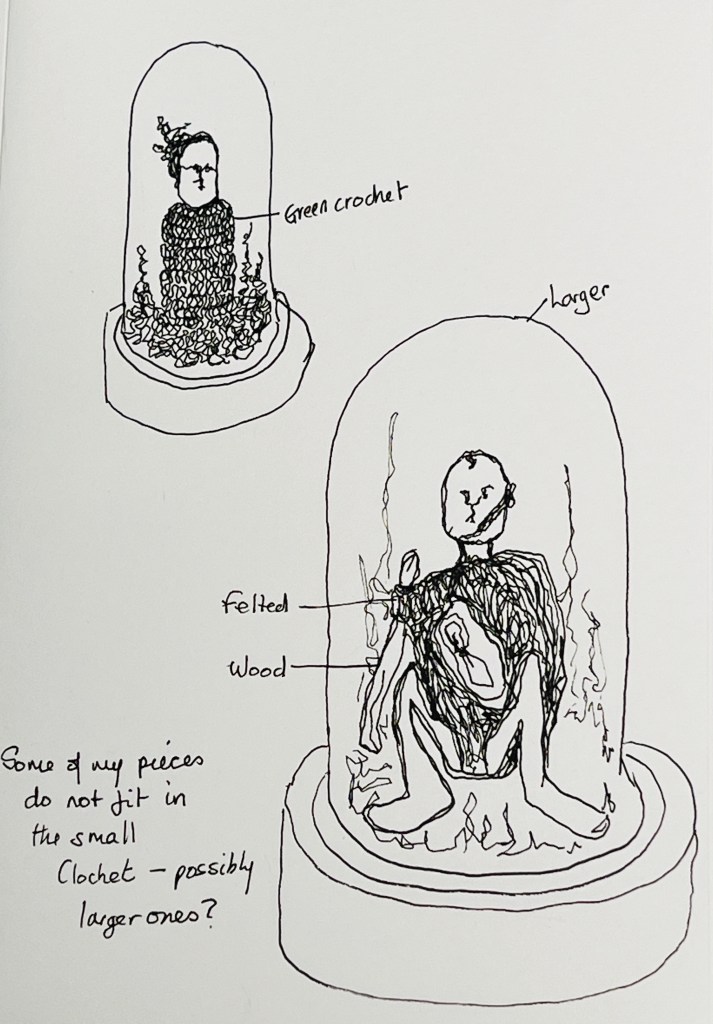 Green crochet
Larger
Felted
Wood
Some of my pieces
do not fit in
the small
Clochet – possibly
larger ones?